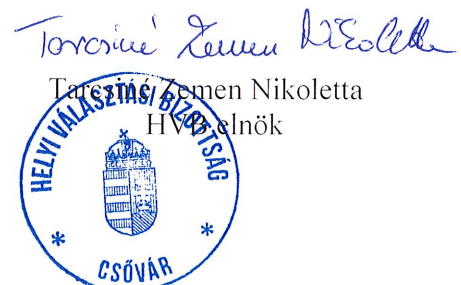 Tarcsiné Zemen Nikoletta
Tarcsiné Zemen Nikoletta
HVB elnök
HELYI VÁLASZTÁSI BIZOTTSÁG
* CSŐVÁR *